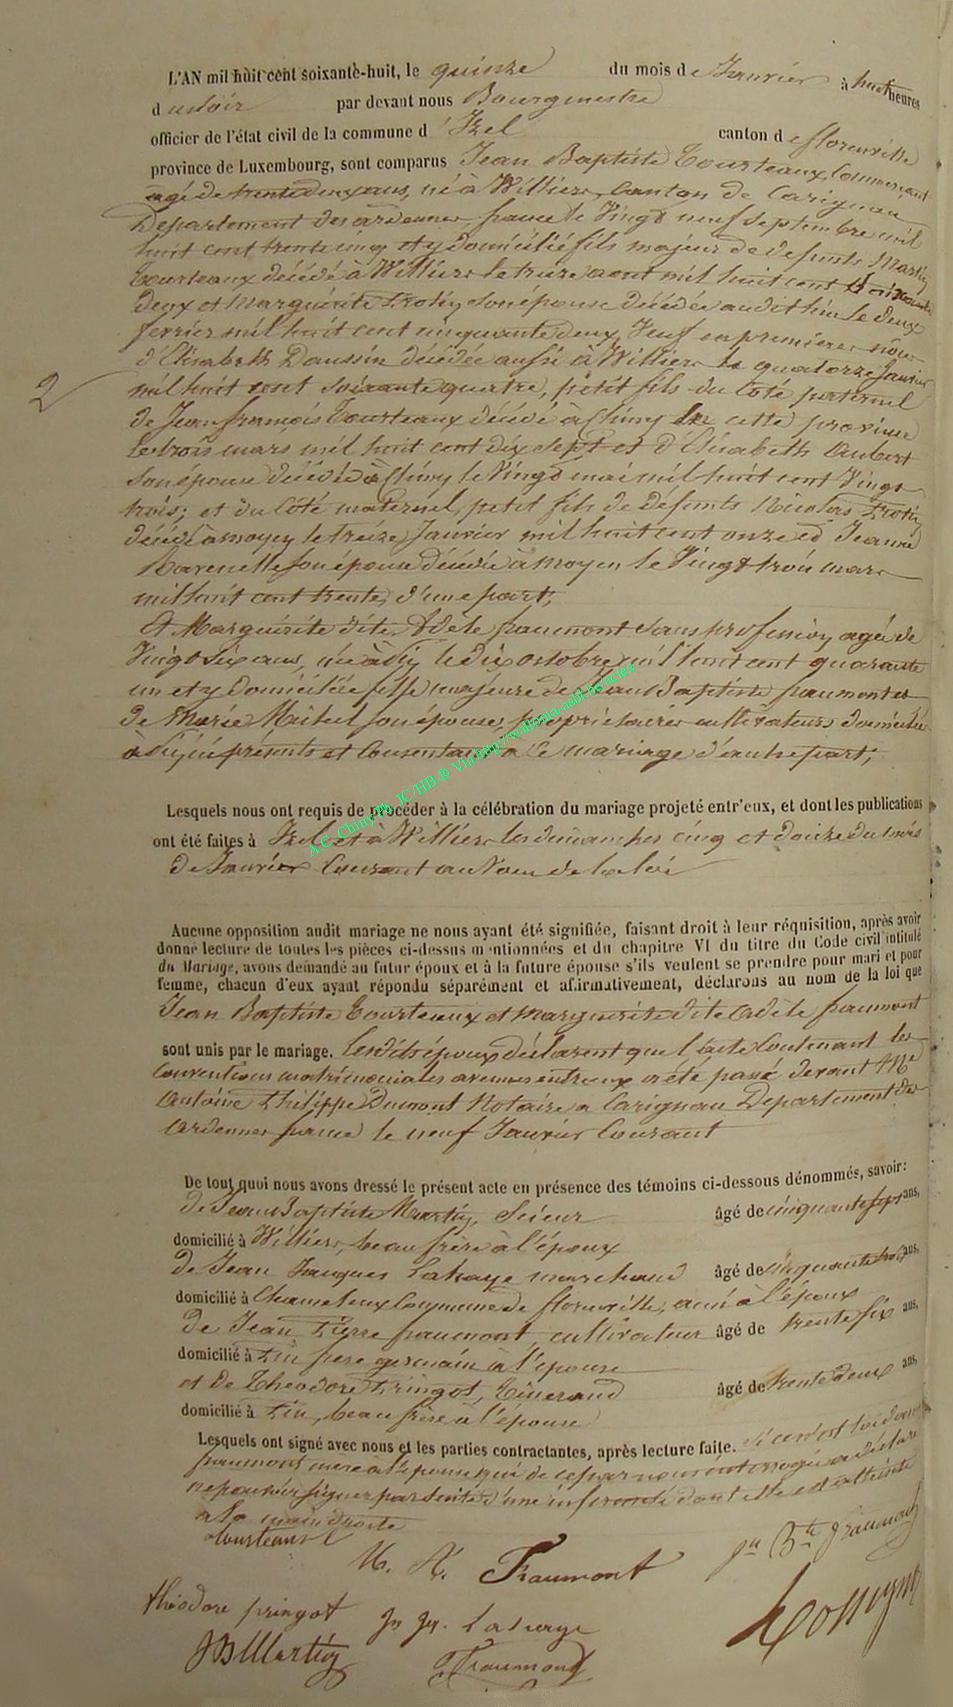 L'AN mil huit cent soixante-huit, le quinze du mois de Janvier à huit heures
d usoir par devant nous Bourgmestre
officier de l'état civil de la commune d 'Izel canton de florenville
province de Luxembourg, sont comparus Jean Baptiste Tourteaux, Commerçant
agé de trente deux ans, né à Williers Canton de Carignan
Département des ardennes france le Vingt neuf septembre mil
huit cent trente cinq et y domicilié fils majeur de defunts Martin
Tourteaux décédé à Williers le treize aout mil huit cent soixante
deux et Marguerite son épouse décédée audit lieu le deux
fevrier mil huit cent cinquante deux, Veuf en premières nôces
d'Elisabeth Daussin décédée aussi à Williers le quatorze Janvier
2
mil huit cent soixante quatre, petit fils du Coté paternel
de Jean françois Tourteaux décédé à Chiny cette province
le trois mars mil huit cent dix sept et d'Elisabeth Aubert
son épouse décédée à Chiny le Vingt mai mil huit cent Vingt
trois; et du Côté maternel, petit fils de defunts Nicolas
décédé à moyen le treize Janvier mil huit cent onze et Jeanne
son épouse décédée à Moyen le Vingt trois mars
mil huit cent trente, d'une part;
Et Marguerite dite Adele fraumont sans profession agée de
Vingt six ans, née à le dix octobre mil huit cent quarante
un et y domiciliée fille majeure de Jean Baptiste fraumont et
de Marie son épouse, propriétaires cultivateurs domiciliés
à presents et Consentans à Ce mariage d'autre part;
A.C. Chiny Ph. JC/HB © Via http://wallonia-asbl.be
Lesquels nous ont requis de procéder à la célébration du mariage projeté entr'eux, et dont les publications
ont été faites à Izel et à Williers les dimanches cinq et douze du mois
de Janvier Courant au Nom de la loi
Aucune opposition audit mariage ne nous ayant été signifiée, faisant droit à leur réquisition, après avoir
donné lecture de toutes les pièces ci-dessus mentionnées et du chapitre VI du titre du Code civil intitulé
du Mariage, avons demandé au futur époux et à la future épouse s'ils veulent se prendre pour mari et pour
femme, chacun d'eux ayant répondu séparément et affirmativement, déclarons au nom de la loi que
Jean Baptiste Tourteaux et Marguerite dite Adele fraumont
sont unis par le mariage. Lesdits époux déclarent que l'acte Contenant les
Conventions matrimoniales avenues entre eux a été passé devant Me
Antoine Philippe Dumont Notaire a Carignan Departement des
Ardennes france le neuf Janvier Courant
De tout quoi nous avons dressé le présent acte en présence des témoins ci-dessous dénommés, savoir:
de Jean Baptiste Martin, Scieur âgé de cinquante sept ans,
domicilié à Williers, beau frère à l'époux
de Jean Jacques Lahaye marchand âgé de cinquante trois ans,
domicilié à Chameleux Commune de florenville, ami à l'époux
de Jean Pierre fraumont, cultivateur âgé de trente six ans,
domicilié à Pin frere germain à l'épouse
et de Théodore Pringot, Tisserand âgé de trente deux ans,
domicilié à Pin, beau frère à l'épouse
Lesquels ont signé avec nous et les parties contractantes, après lecture faite. Si ce n'est la dame
fraumont mere a l'épouse qui de ce par nous interrogée a déclaré
ne pouvoir signer par suite d'une infirmité dont elle est atteinte
a la main droite
Tourteaux
M. A. Fraumont Jn Bte fraumont
théodore pringot Jn Jq. Lahaye
JB Martin Fraumont